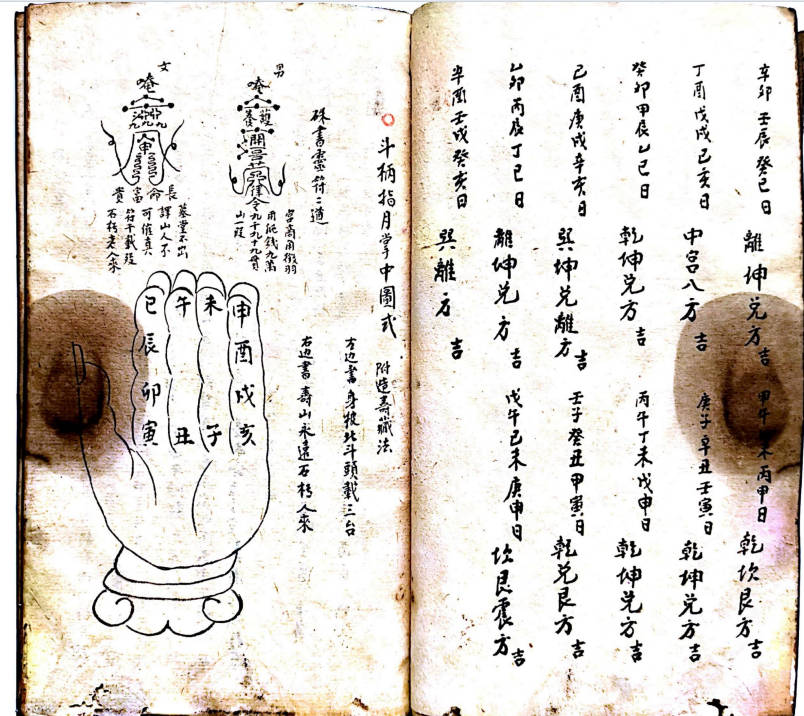 辛卯壬辰癸巳日 離坤兌方吉
甲午 未丙申日 乾坎艮方吉
丁酉戊戌己亥日 中宮八方吉
庚子辛丑壬寅日 乾坤兌方吉
癸卯甲辰乙巳日 乾坤兌方吉
丙午丁未戊申日 乾坤兌方吉
己酉庚戌辛亥日 巽坤兌離方吉
壬子癸丑甲寅日 乾兌艮方吉
乙卯丙辰丁巳日 離坤兌方吉
戊午己未庚申日 坎艮震方吉
辛酉壬戌癸亥日 巽離方吉
斗柄指月掌中圖式 附造壽藏法
左边書身披北斗頭戴三台
硃書靈符二道
右边書壽山永遠石朽人來
男
唵
宮商角徵羽
用紙錢九萬
九千九十九貫
山一段
女
唵
長命富貴
墓堂不出
譯山人不
可催真
符千載啟
石朽之人來
申 未 午 巳
酉 辰
戌 卯
亥 子 丑 寅